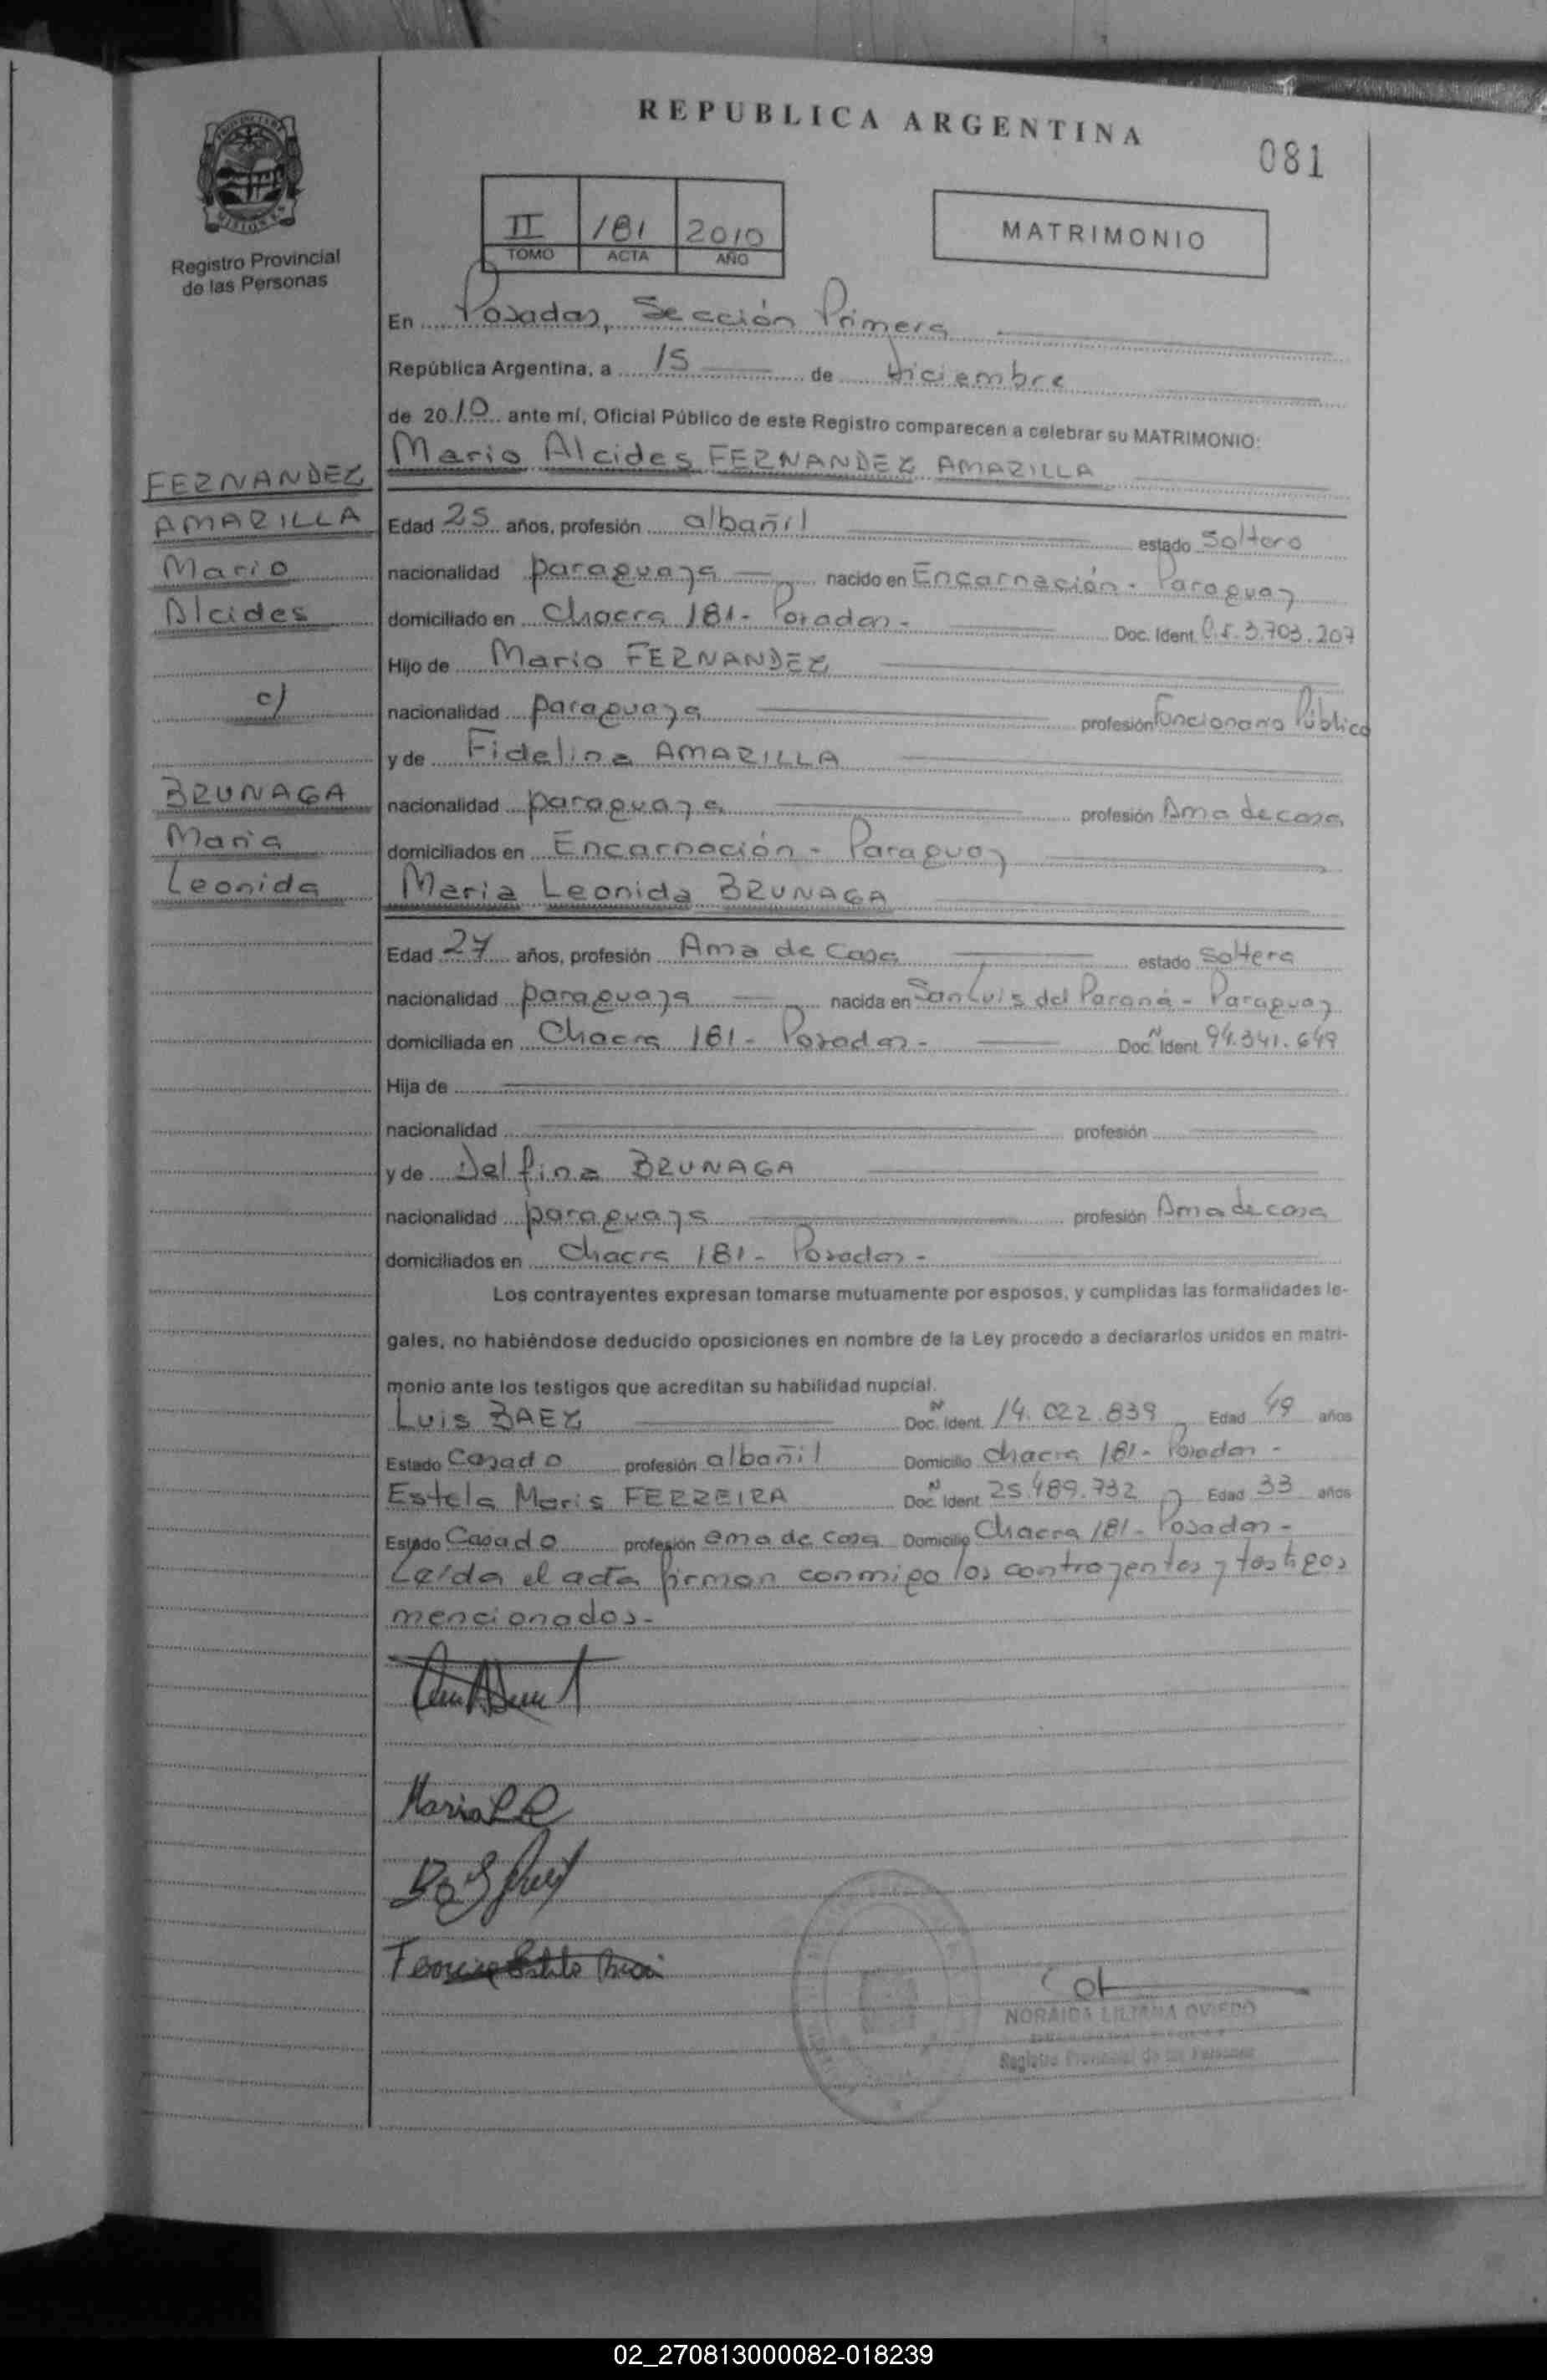 REPUBLICA ARGENTINA
081
Registro Provincial
de las Personas
II 181 2010
TOMO ACTA AÑO
MATRIMONIO
En Posadas, Sección Primera
República Argentina, a 15 de Diciembre
de 2010 ante mí, Oficial Público de este Registro comparecen a celebrar su MATRIMONIO:
Mario Alcides FERNANDEZ AMARILLA
FERNANDEZ
AMARILLA
Mario
Alcides
c/
BRUNAGA
Maria
Leonida
Edad 25 años, profesión albañil estado soltero
nacionalidad paraguaya nacido en Encarnación - Paraguay
domiciliado en Chacra 181 - Posadas - Doc. Ident. C.I. 3.703.207
Hijo de Mario FERNANDEZ
nacionalidad paraguaya profesión Funcionario Público
y de Fidelina AMARILLA
nacionalidad paraguaya profesión Ama de casa
domiciliados en Encarnación - Paraguay
Maria Leonida BRUNAGA
Edad 27 años, profesión Ama de Casa estado soltera
nacionalidad paraguaya nacida en San Luis del Paraná - Paraguay
domiciliada en Chacra 181 - Posadas - Doc. N Ident. 94.341.649
Hija de
nacionalidad profesión
y de Delfina BRUNAGA
nacionalidad paraguaya profesión Ama de casa
domiciliados en Chacra 181 - Posadas -
Los contrayentes expresan tomarse mutuamente por esposos, y cumplidas las formalidades le-
gales, no habiéndose deducido oposiciones en nombre de la Ley procedo a declararlos unidos en matri-
monio ante los testigos que acreditan su habilidad nupcial.
Luis BAEZ Doc. N Ident. 14.022.839 Edad 49 años
Estado Casado profesión albañil Domicilio Chacra 181 - Posadas -
Estela Maris FERREIRA Doc. N Ident. 25.489.732 Edad 33 años
Estado Casado profesión ama de casa Domicilio Chacra 181 - Posadas -
Leída el acta firman conmigo los contrayentes y testigos
mencionados -
NORAIDA LILIANA OVIEDO
Registro Provincial de las Personas
02_270813000082-018239